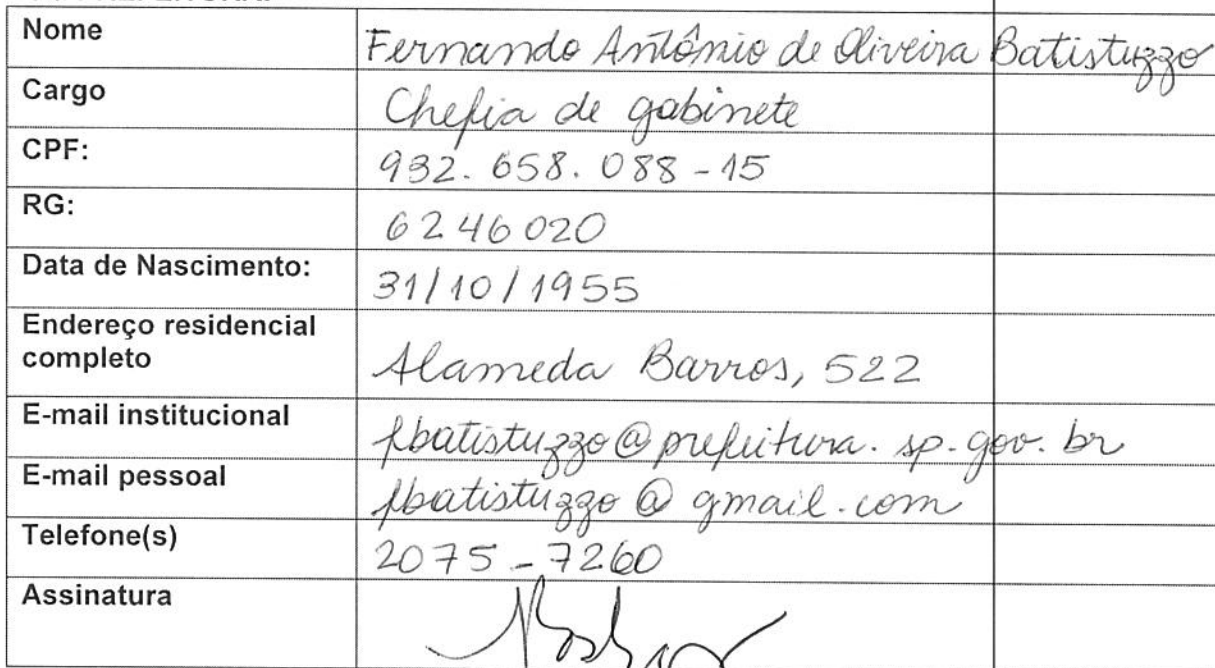 Nome Fernando Antônio de Oliveira Batistuzzo
Cargo Chefia de gabinete
CPF: 932.658.088-15
RG: 6246020
Data de Nascimento: 31/10/1955
Endereço residencial
completo Alameda Barros, 522
E-mail institucional fbatistuzzo@prefeitura.sp.gov.br
E-mail pessoal fbatistuzzo@gmail.com
Telefone(s) 2075-7260
Assinatura